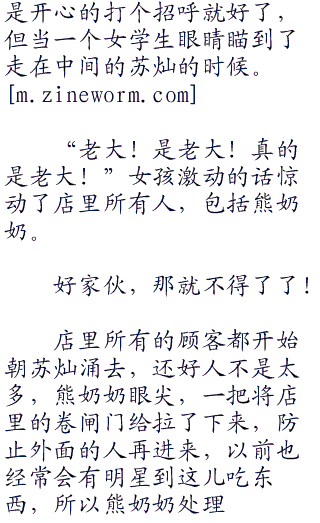 是开心的打个招呼就好了，
但当一个女学生眼睛瞄到了
走在中间的苏灿的时候。
[m.zineworm.com]
“老大！是老大！真的
是老大！”女孩激动的话惊
动了店里所有人，包括熊奶
奶。
好家伙，那就不得了了！
店里所有的顾客都开始
朝苏灿涌去，还好人不是太
多，熊奶奶眼尖，一把将店
里的卷闸门给拉了下来，防
止外面的人再进来，以前也
经常会有明星到这儿吃东
西，所以熊奶奶处理